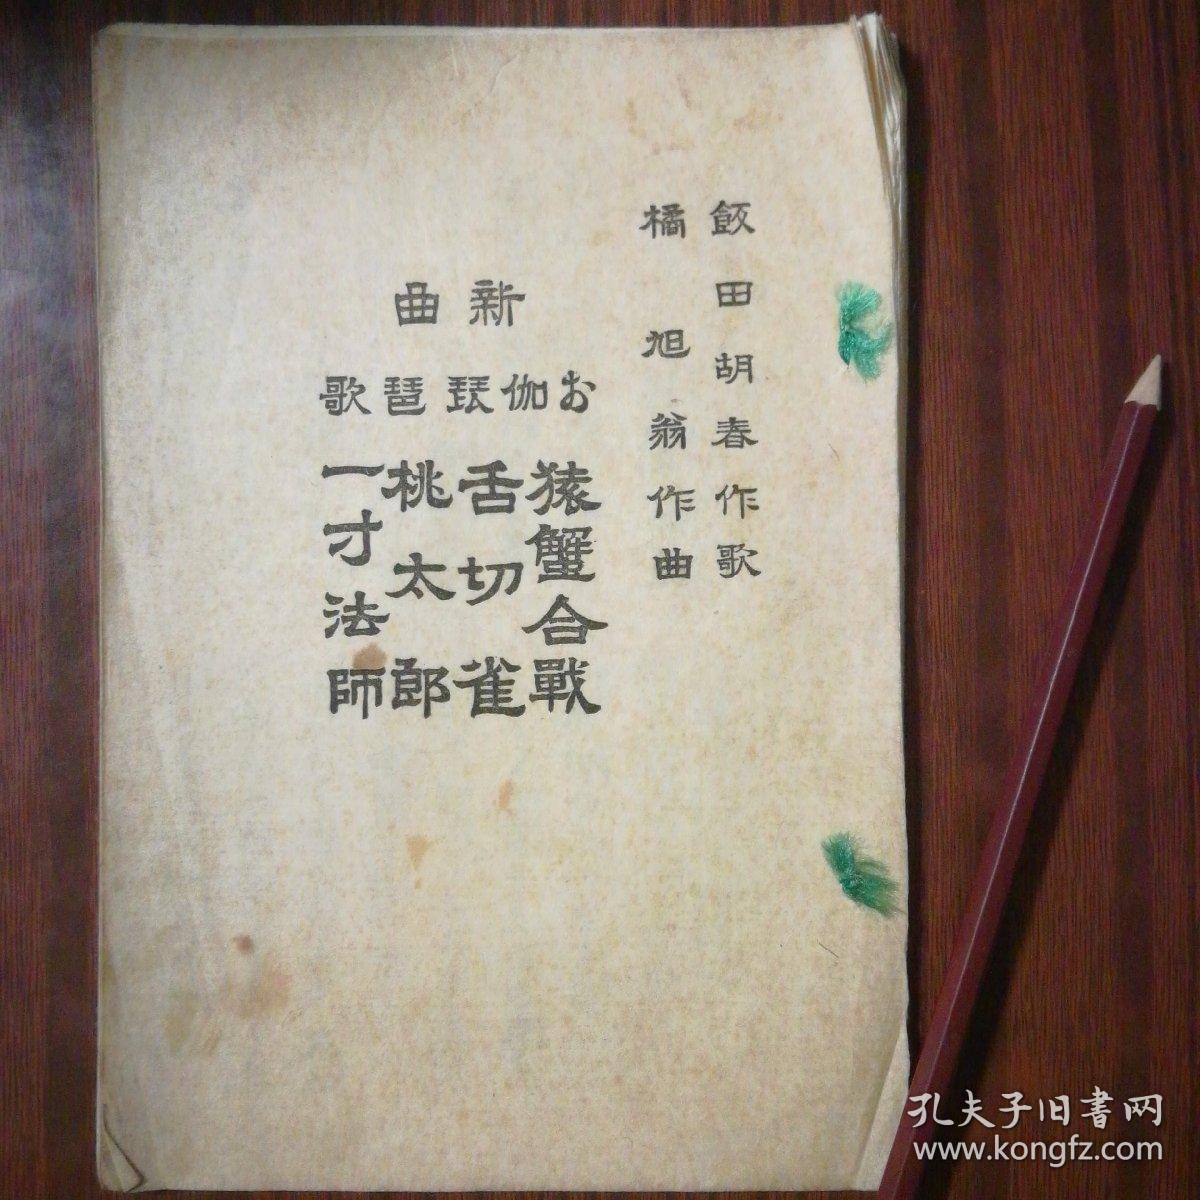 飯田胡春作歌
橘旭翁作曲
新曲
お伽琵琶歌
猿蟹合戰
舌切雀
桃太郎
一寸法師
孔夫子旧書网
www.kongfz.com